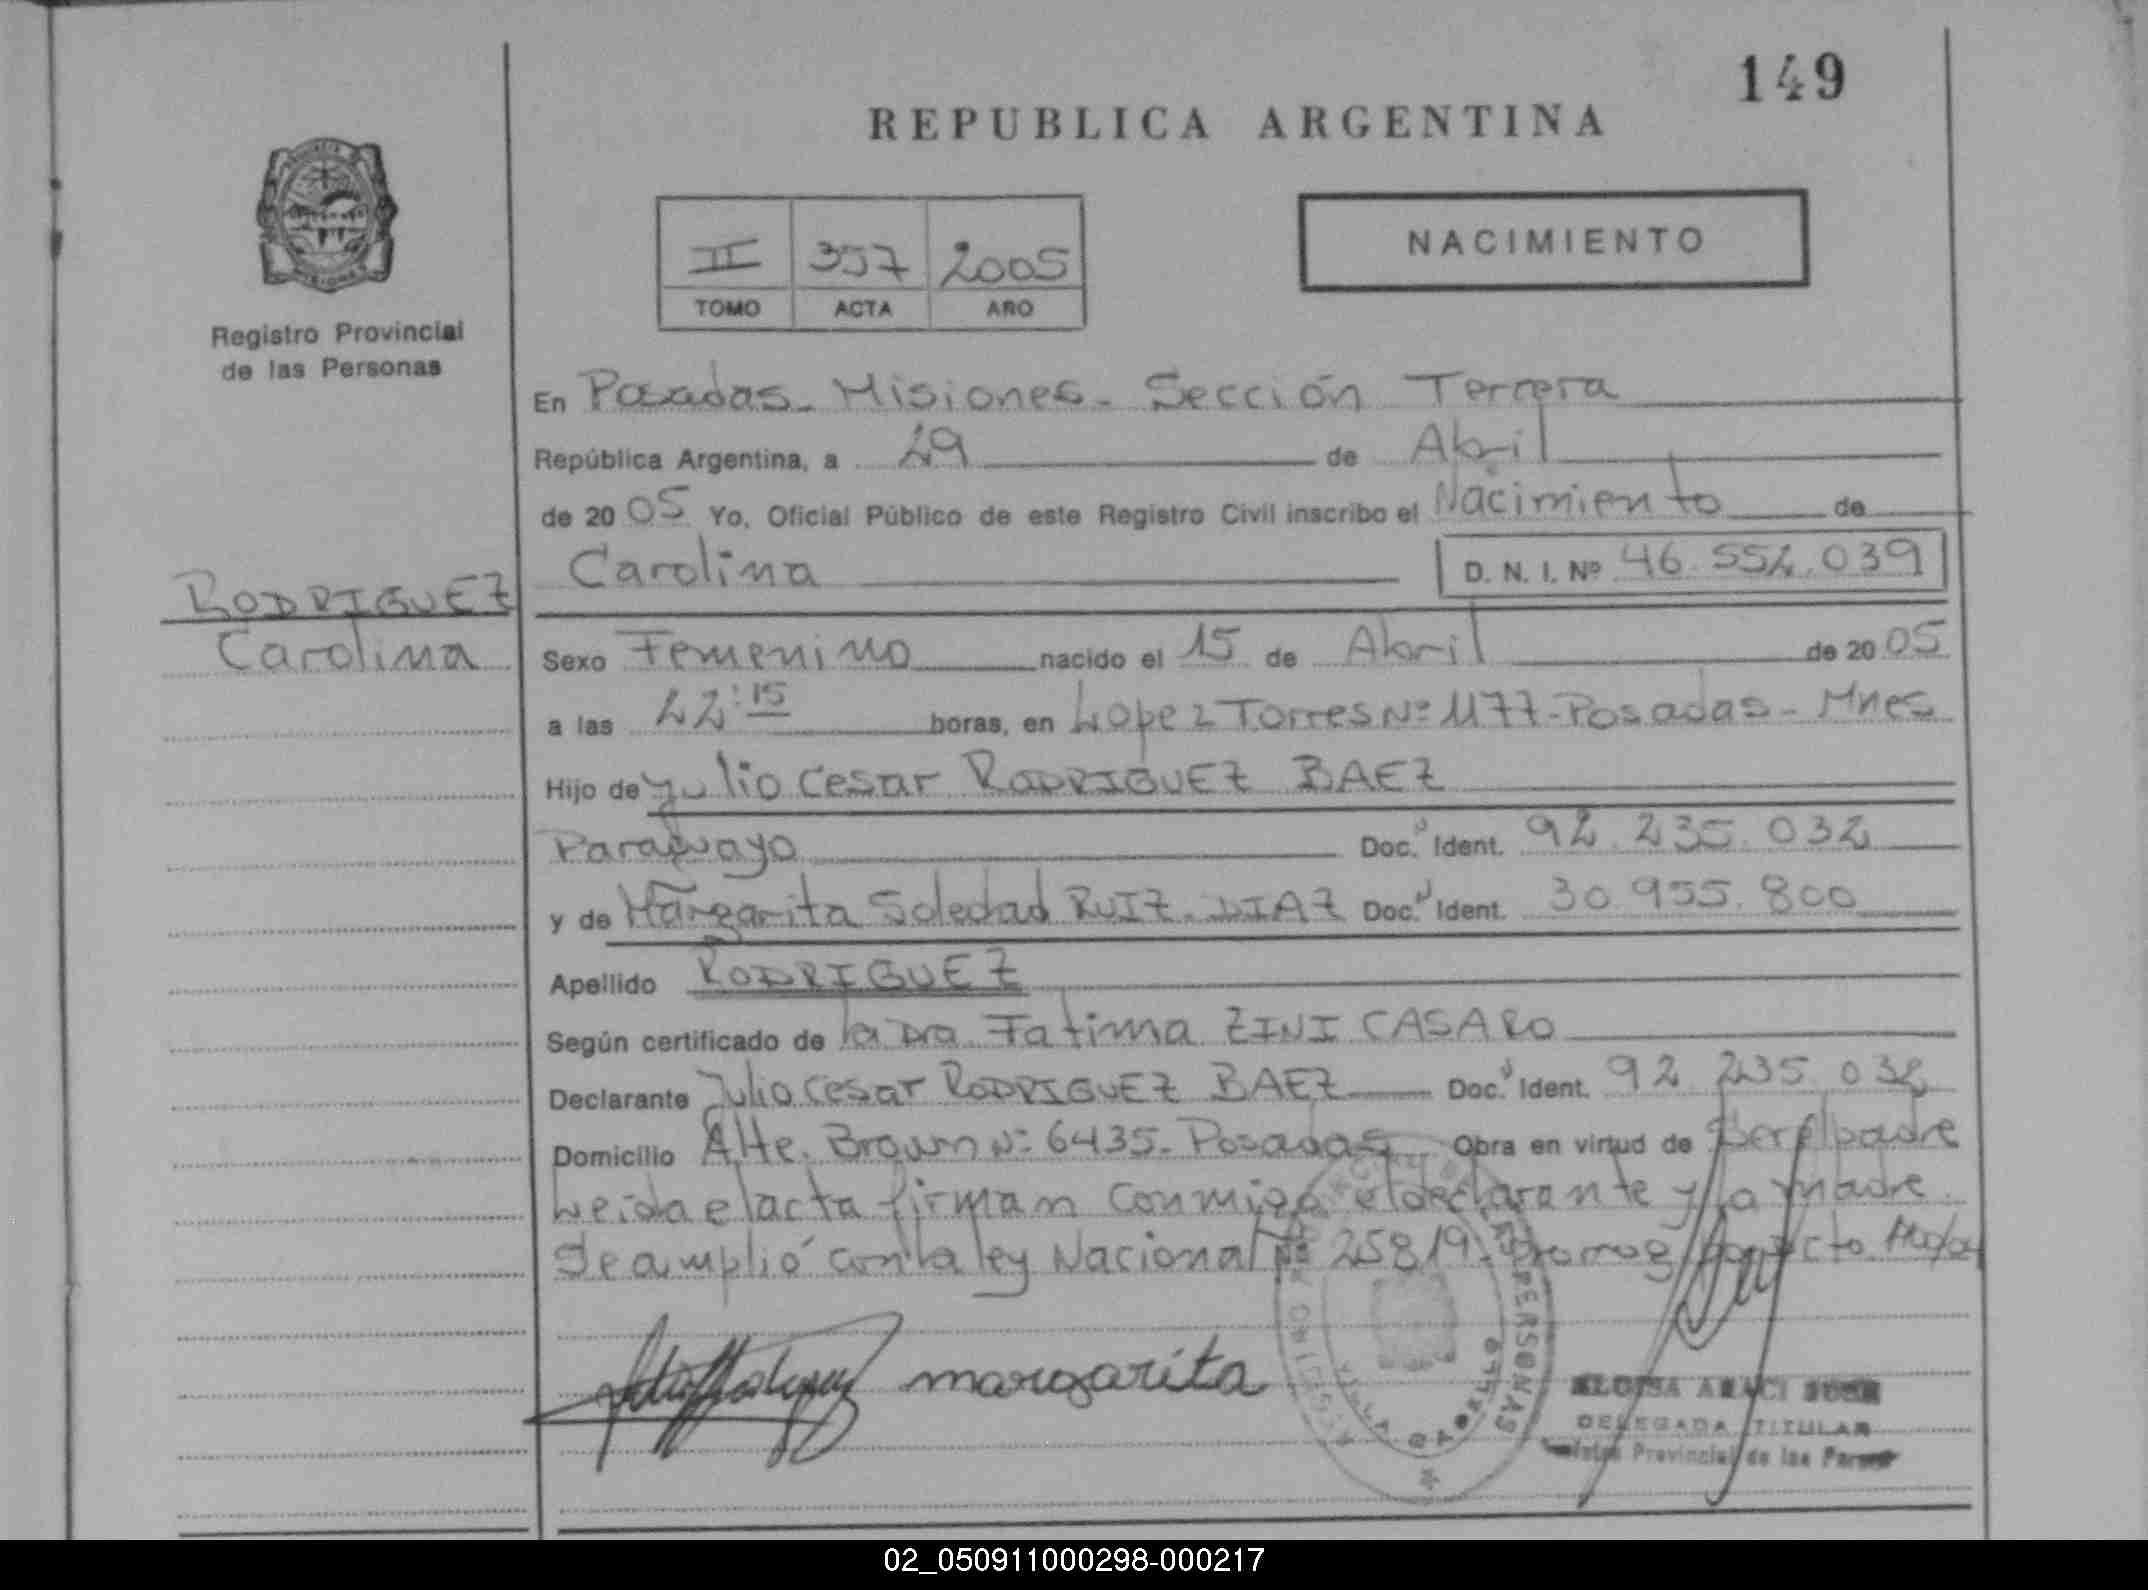 149
REPUBLICA ARGENTINA
II 357 2005
TOMO ACTA AÑO
NACIMIENTO
Registro Provincial
de las Personas
En Posadas - Misiones - Sección Tercera
República Argentina, a 29 de Abril
de 2005 Yo, Oficial Público de este Registro Civil inscribo el Nacimiento de
Carolina D. N. I. Nº 46.554.039
RODRIGUEZ
Carolina
Sexo Femenino nacido el 15 de Abril de 2005
a las 22:15 horas, en Lopez Torres Nº 1177 - Posadas - Mnes
Hijo de Julio Cesar RODRIGUEZ BAEZ
Paraguayo Doc. Ident. 92.235.032
y de Margarita Soledad RUIZ DIAZ Doc. Ident. 30.955.800
Apellido RODRIGUEZ
Según certificado de la Dra Fatima ZINI CASARO
Declarante Julio Cesar RODRIGUEZ BAEZ Doc. Ident. 92.235.032
Domicilio Alte. Brown Nº 6435 - Posadas Obra en virtud de Ser el padre
Leida el acta firman conmigo el declarante y la madre.
Se amplió con la ley Nacional Nº 25819
margarita
PERSONAS
DELEGADA TITULAR
Provincial de las
02_050911000298-000217